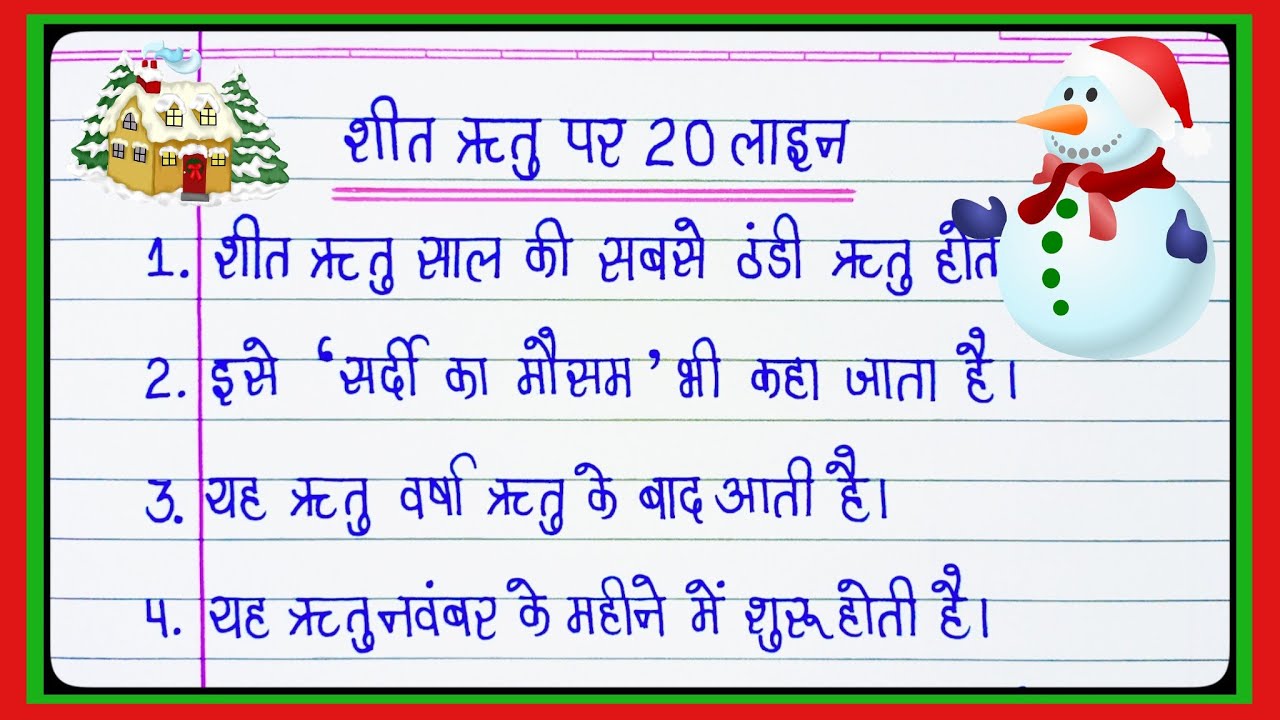 शीत ऋतु पर 20 लाइन
1. शीत ऋतु साल की सबसे ठंडी ऋतु होत
2. इसे ‘सर्दी का मौसम’ भी कहा जाता है।
3. यह ऋतु वर्षा ऋतु के बाद आती है।
4. यह ऋतु नवंबर के महीने में शुरू होती है।